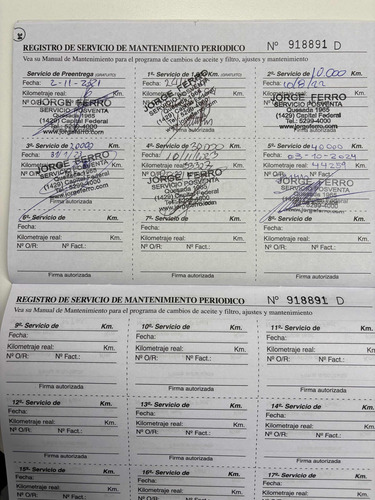 REGISTRO DE SERVICIO DE MANTENIMIENTO PERIODICO Nº 918891 D
Vea su Manual de Mantenimiento para el programa de cambios de aceite y filtro, ajustes y mantenimiento
Servicio de Preentrega (GRATUITO)
Fecha: 2-11-2021
Kilometraje real: Km.
JORGE FERRO
SERVICIO POSVENTA
Quesada 1965
(1429) Capital Federal
Tel.: 5299-4000
www.jorgeferro.com
1º- Servicio de Km. (GRATUITO)
Fecha:
Kilometraje real: Km.
JORGE FERRO
SERVICIO POSVENTA
(1429) Capital Federal
www.jorgeferro.com
Firma autorizada
2º- Servicio de 10.000 Km.
Fecha: 10/8/22
Kilometraje real: Km.
JORGE FERRO
SERVICIO POSVENTA
Quesada 1965
(1429) Capital Federal
Tel.: 5299-4000
www.jorgeferro.com
3º- Servicio de 20000 Km.
Fecha:
Kilometraje real: Km.
JORGE FERRO
SERVICIO POSVENTA
Quesada 1965
(1429) Capital Federal
Tel.: 5299-4000
www.jorgeferro.com
Firma autorizada
4º- Servicio de 30000 Km.
Fecha: 10/11/23
Kilometraje real: Km.
JORGE FERRO
SERVICIO POSVENTA
Quesada 1965
(1429) Capital Federal
Tel.: 5299-4000
www.jorgeferro.com
5º- Servicio de 40000 Km.
Fecha: 03-10-2024
Kilometraje real: 44259 Km.
JORGE FERRO
SERVICIO POSVENTA
Quesada 1965
(1429) Capital Federal
Tel.: 5299-4000
www.jorgeferro.com
6º- Servicio de Km.
Fecha:
Kilometraje real: Km.
Nº O/R: Nº Fact.:
Firma autorizada
7º- Servicio de Km.
Fecha:
Kilometraje real: Km.
Nº O/R: Nº Fact.:
Firma autorizada
8º- Servicio de Km.
Fecha:
Kilometraje real: Km.
Nº O/R: Nº Fact.:
Firma autorizada
REGISTRO DE SERVICIO DE MANTENIMIENTO PERIODICO Nº 918891 D
Vea su Manual de Mantenimiento para el programa de cambios de aceite y filtro, ajustes y mantenimiento
9º- Servicio de Km.
Fecha:
Kilometraje real: Km.
Nº O/R: Nº Fact.:
Firma autorizada
10º- Servicio de Km.
Fecha:
Kilometraje real: Km.
Nº O/R: Nº Fact.:
Firma autorizada
11º- Servicio de Km.
Fecha:
Kilometraje real: Km.
Nº O/R: Nº Fact.:
Firma autorizada
12º- Servicio de Km.
Fecha:
Kilometraje real: Km.
Nº O/R: Nº Fact.:
Firma autorizada
13º- Servicio de Km.
Fecha:
Kilometraje real: Km.
Nº O/R: Nº Fact.:
Firma autorizada
14º- Servicio de Km.
Fecha:
Kilometraje real: Km.
Nº O/R: Nº Fact.:
Firma autorizada
15º- Servicio de Km.
Fecha:
Kilometraje real: Km.
16º- Servicio de Km.
Fecha:
Kilometraje real: Km.
17º- Servicio de Km.
Fecha:
Kilometraje real: Km.